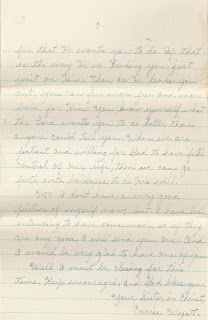 for that He wants you to do. If that
is the way He is leading you, just
wait on Him. Then as He leads you
out, you can
for Him. You know yourself what
the Lord wants you to do better than
anyone could tell you. When we are
patient and willing for God to have full
control of our life, then we can go
forth with boldness to do His will.
I don't have a very good
picture of myself now, but I have been
intending to have some made so if they
are any good, I will send you one. And
I would be very glad to have one of you.
Well I must be closing for this
time. Keep encouraged, and God bless you.
Your Sister in Christ,
Carrie Wyatt.